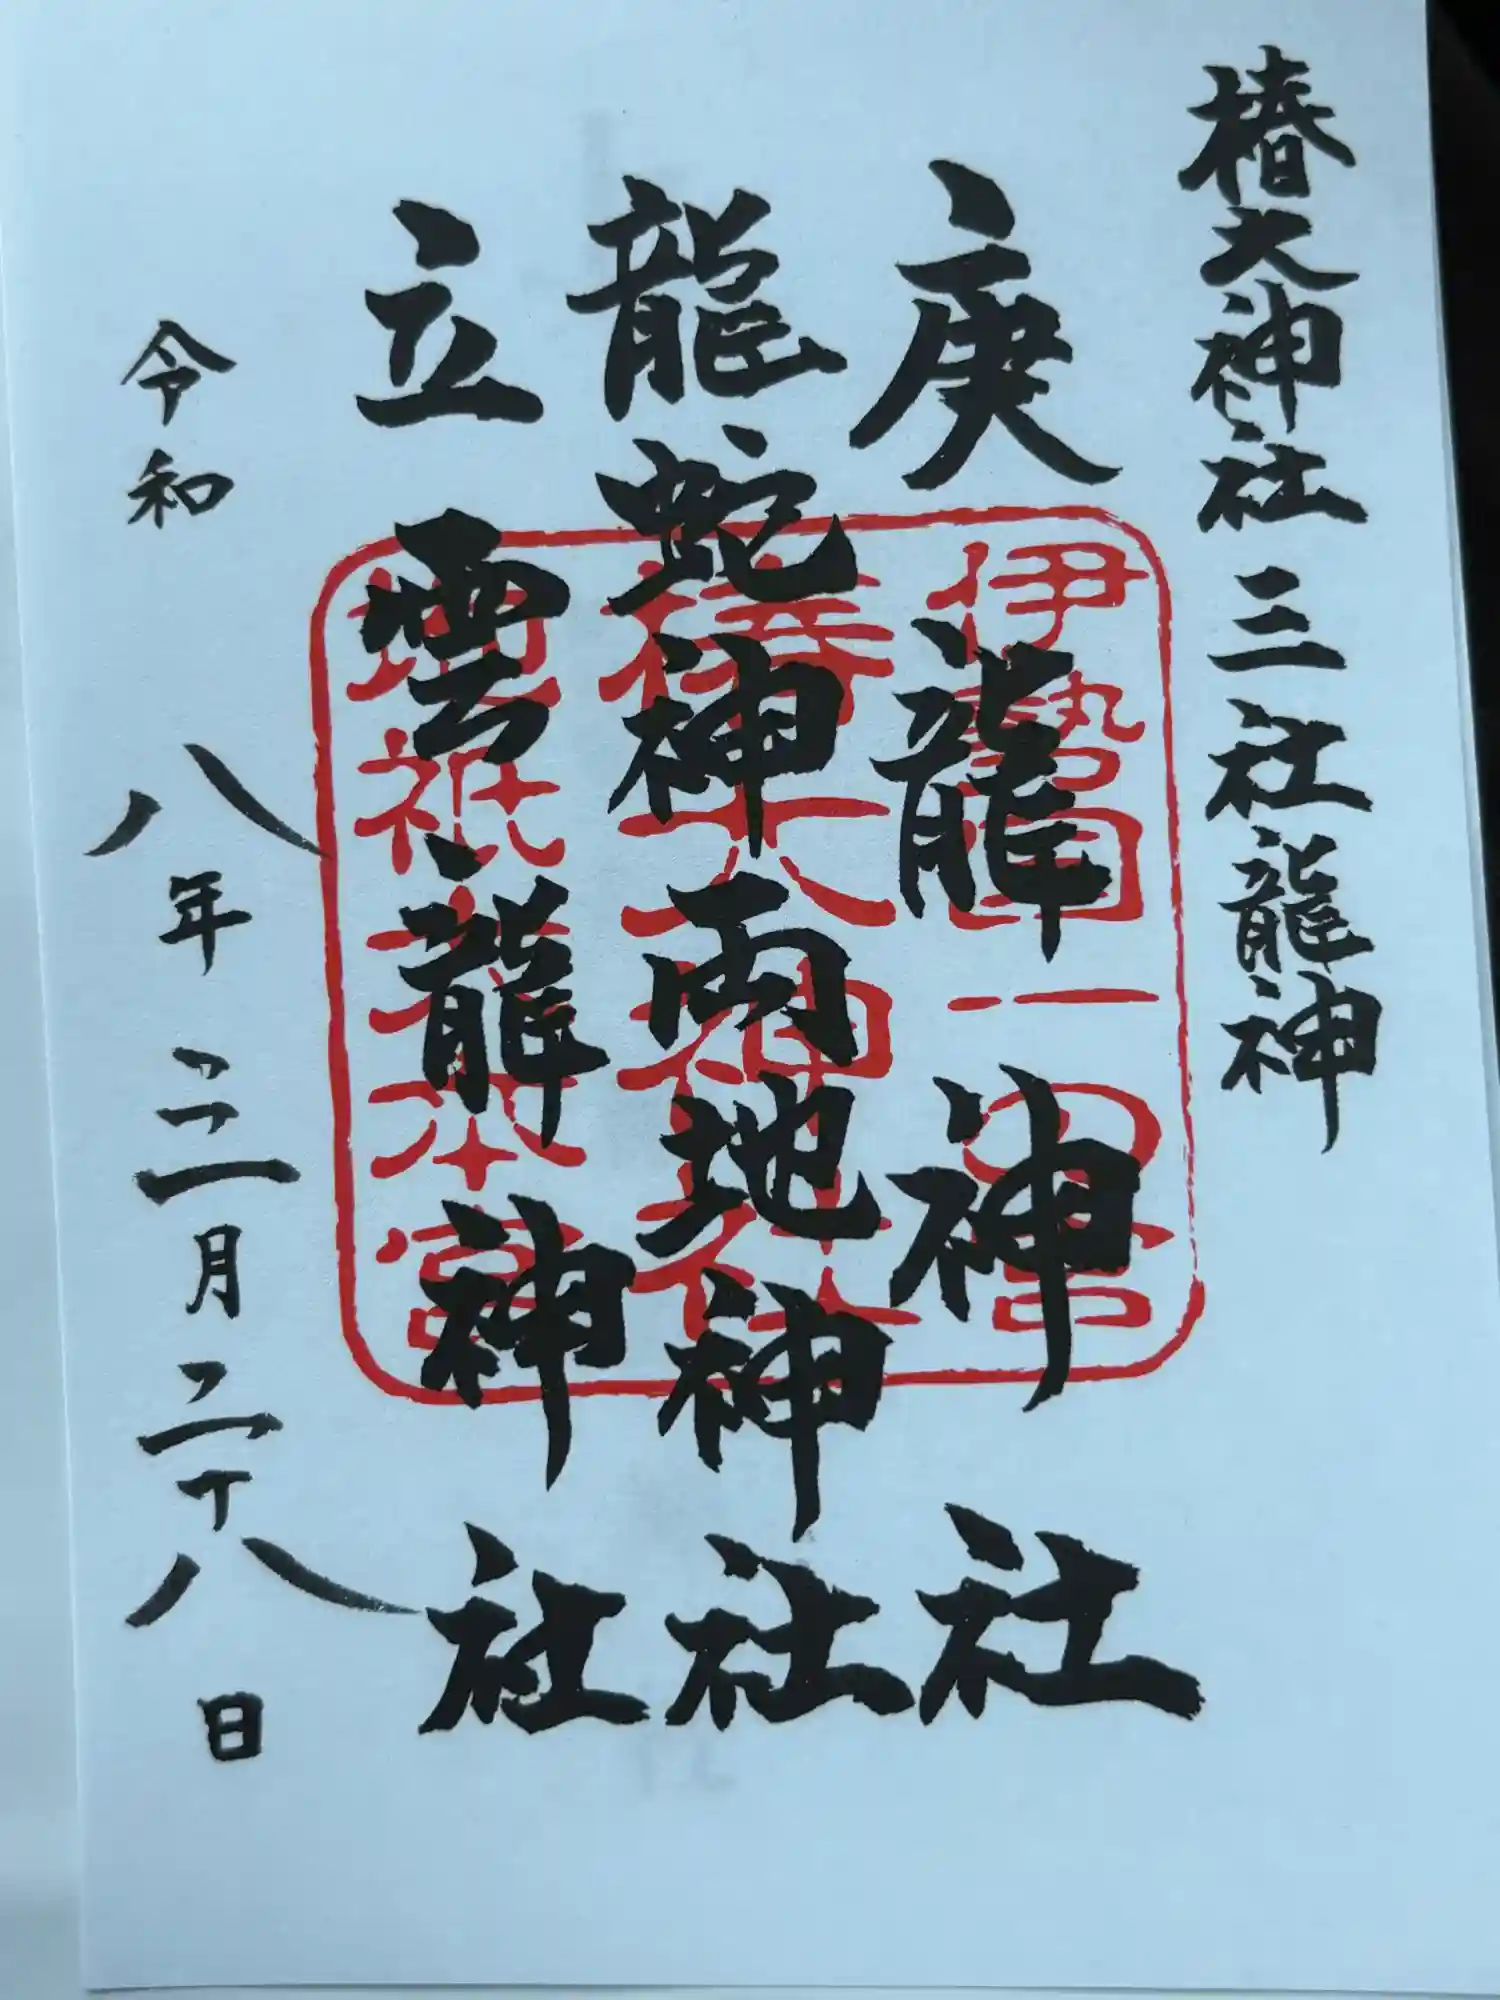 椿大神社 三社龍神
庚龍神社
龍蛇神両地神社
立雲龍神社
令和八年三月二十八日
伊勢国一の宮
椿大神社
地祇大本宮